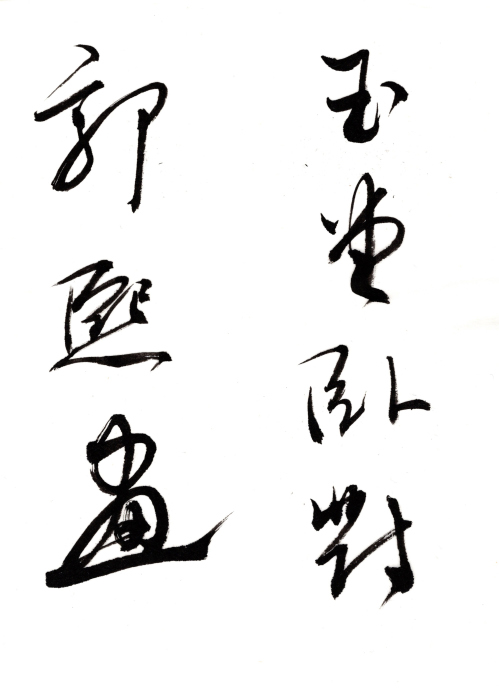 玉堂臥對
郭熙畫